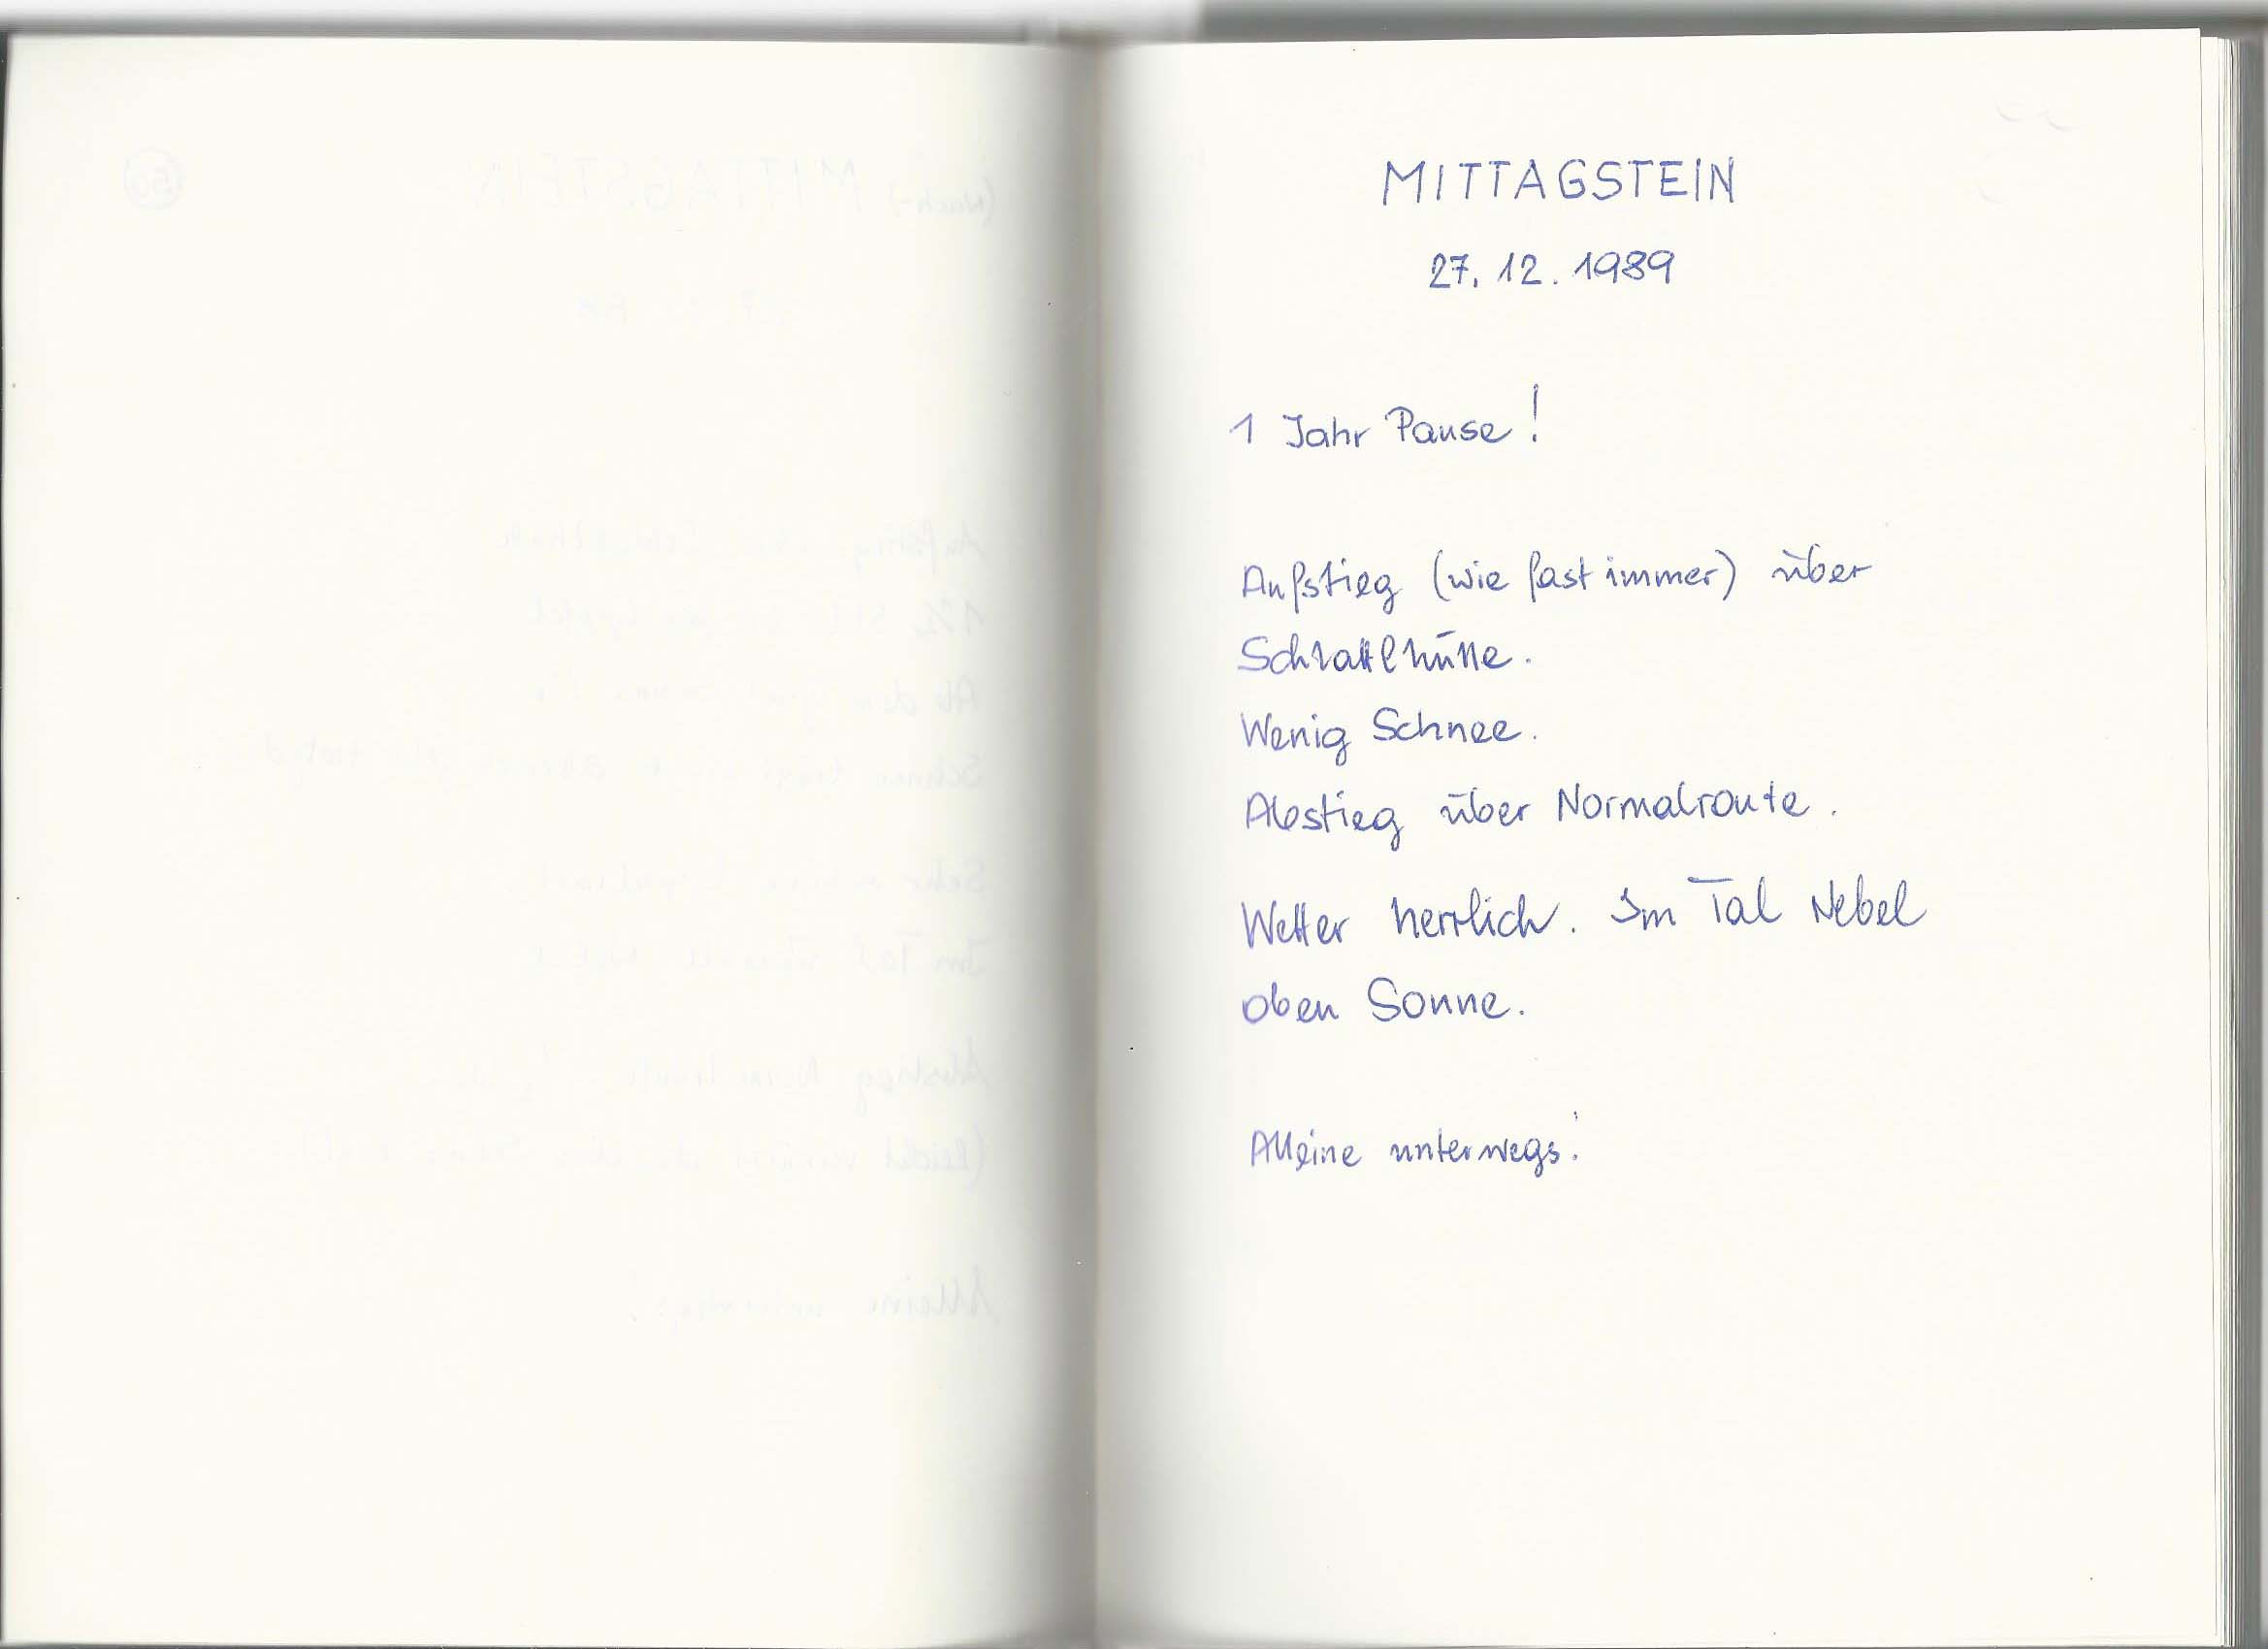 MITTAGSTEIN
27. 12. 1989
1 Jahr Pause!
Aufstieg (wie fast immer) über
Schrattlhütte.
Wenig Schnee.
Abstieg über Normalroute.
Wetter herrlich. Im Tal Nebel
oben Sonne.
Alleine unterwegs!